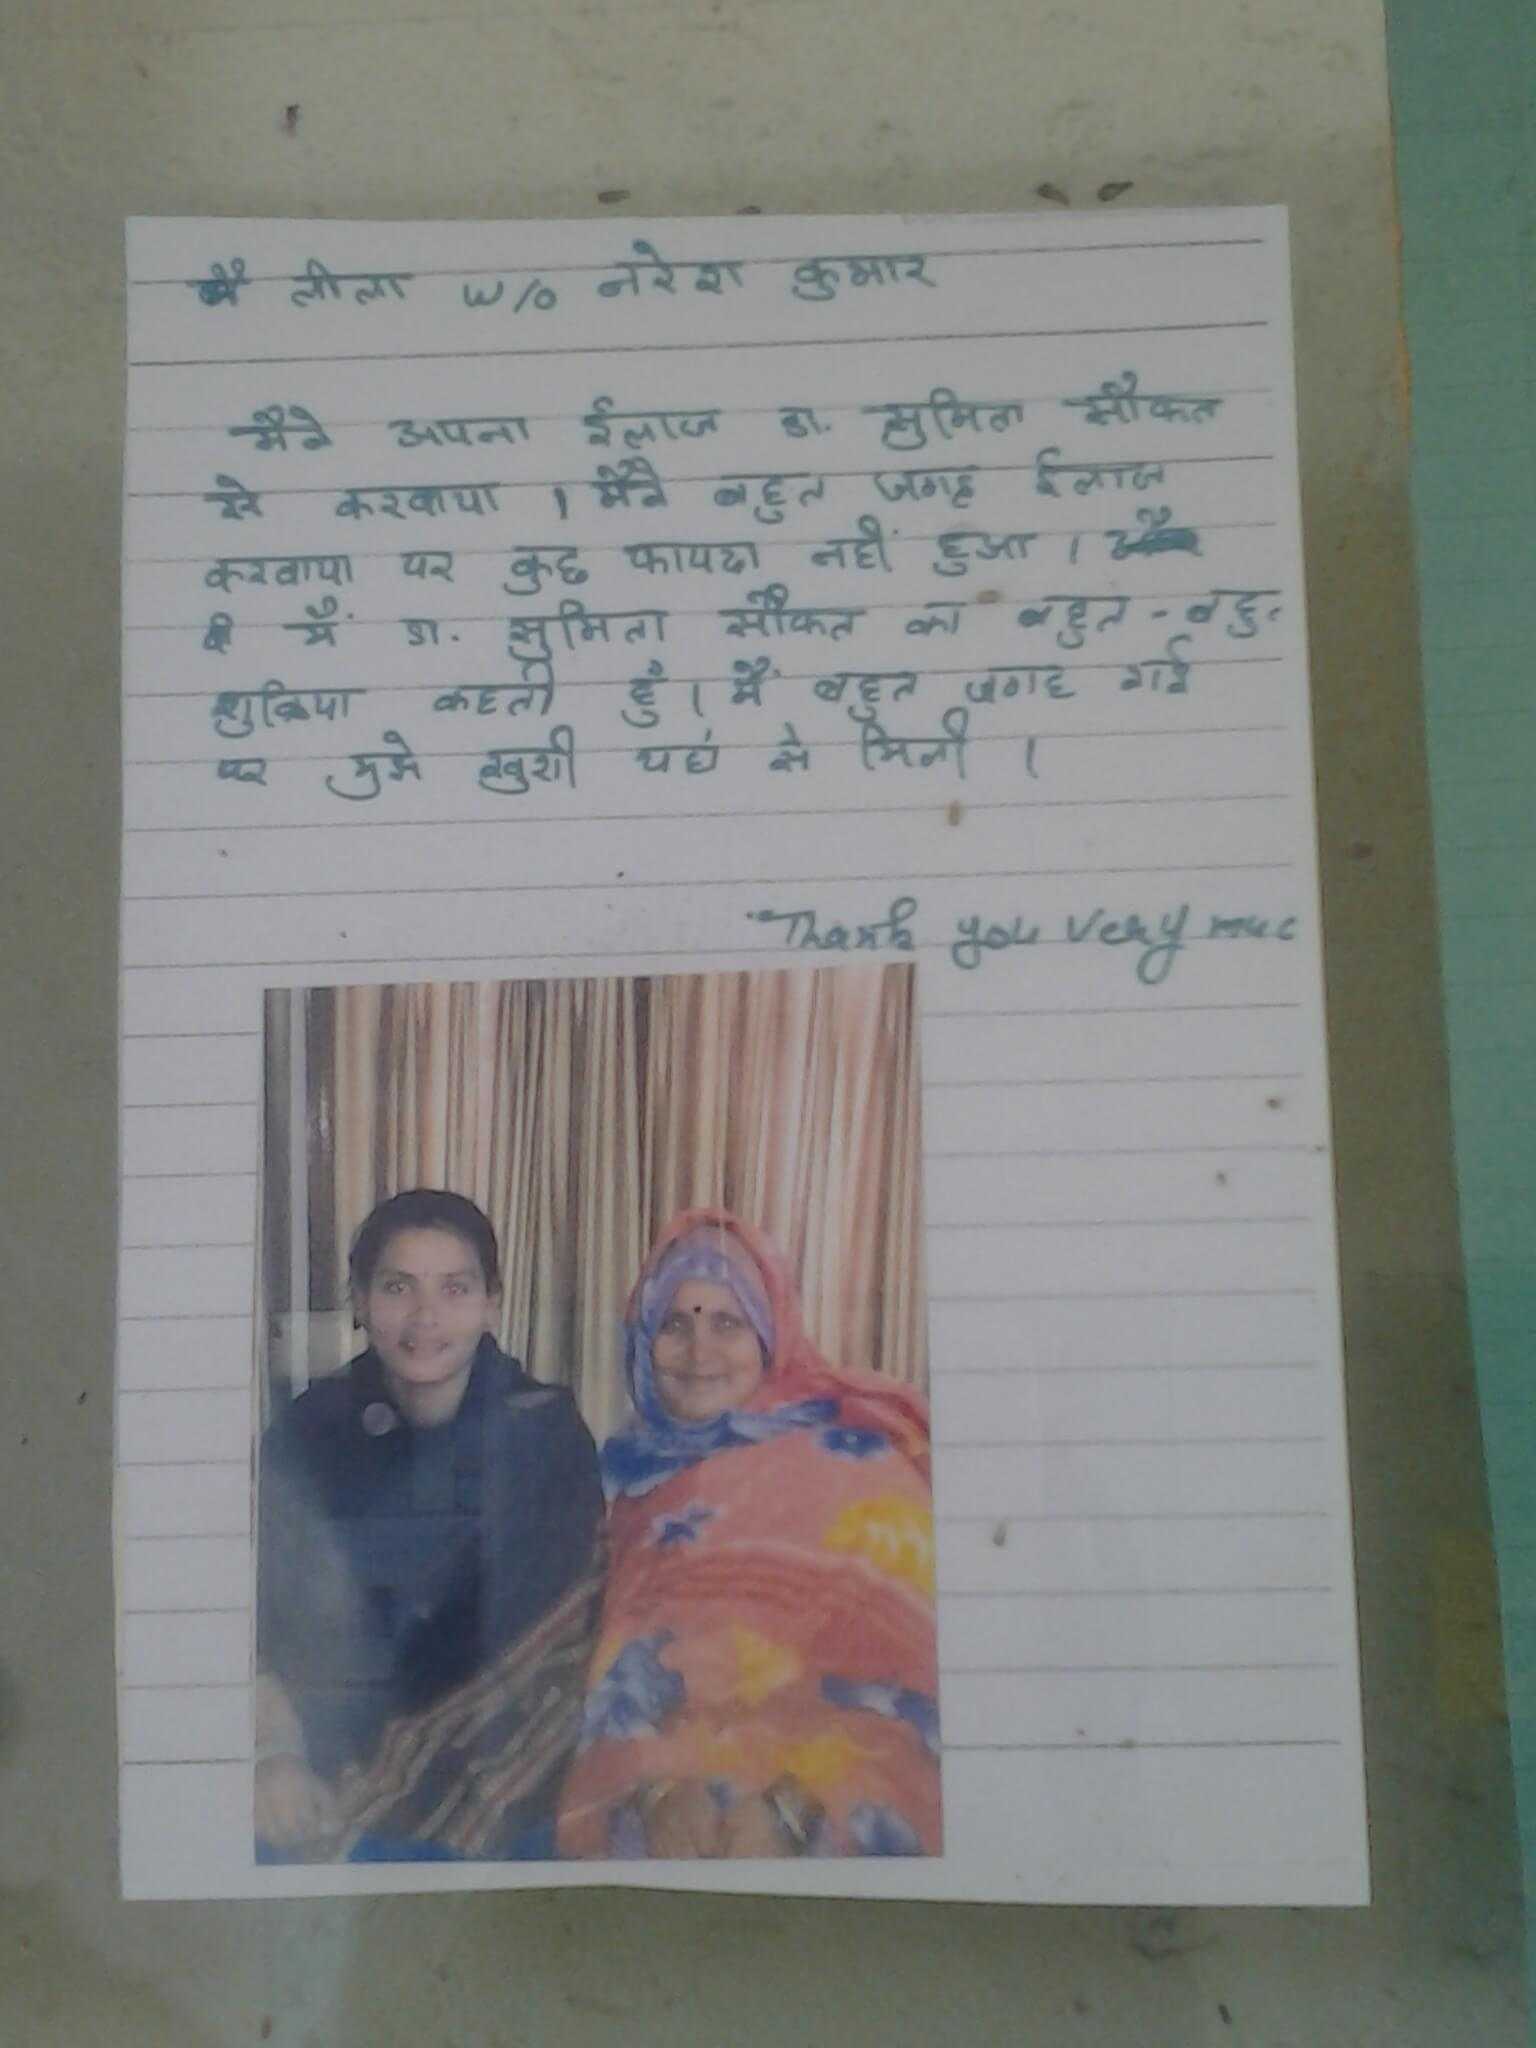 मैं लीला w/o नरेश कुमार
मैने अपना ईलाज डा. सुमिता सौफत
से करवाया । मैने बहुत जगह ईलाज
करवाया पर कुछ फायदा नहीं हुआ ।
मैं डा. सुमिता सौफत का बहुत - बहु
शुक्रिया कहती हूँ । मैं बहुत जगह गई
पर मुझे खुशी यहाँ से मिली ।
Thank you very muc